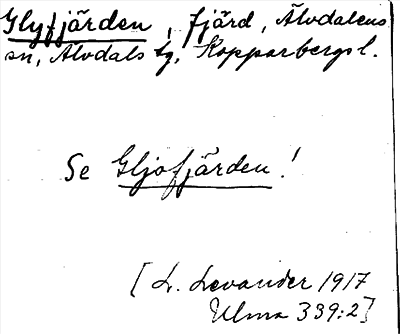 Glyfjärden, fjärd, Älvdalens
sn, Älvdals tg, Kopparbergs l.
Se Gljofjärden!
[L. Levander 1917
Ulma 339:2]